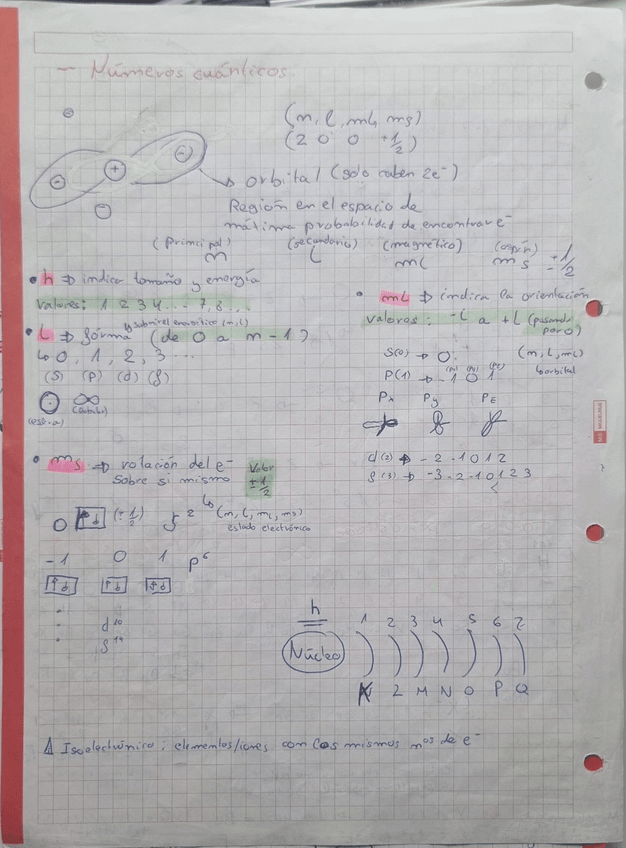 - Números cuánticos
(n, l, ml, ms)
(2 0 0 +1/2)
orbital (solo caben 2e⁻)
Región en el espacio de
máxima probabilidad de encontrar e⁻
(Principal) (secundario) (magnético) (espín)
n l ml ms ±1/2
• n ⇒ indica tamaño y energía
valores: 1 2 3 4 ... 7, 8 ...
• L ⇒ forma (de 0 a n-1)
subnivel energético (n, l)
↳ 0, 1, 2, 3 ...
(s) (p) (d) (f)
• mL ⇒ indica la orientación
valores: -L a +L (pasando
por 0)
S(0) → 0. (n, l, ml)
orbital
P(1) → -1 0 1
Px Py Pz
d(2) → -2 -1 0 1 2
f(3) → -3 -2 -1 0 1 2 3
• ms ⇒ rotación del e⁻
sobre si mismo
Valor
±1/2
↳ (n, l, ml, ms)
estado electrónico
0 (±1/2) s²
-1 0 1 p⁶
d¹⁰
f¹⁴
n
1 2 3 4 5 6 7
Núcleo
K L M N O P Q
Δ Isoelectrónico: elementos/iones con los mismos nºs de e⁻